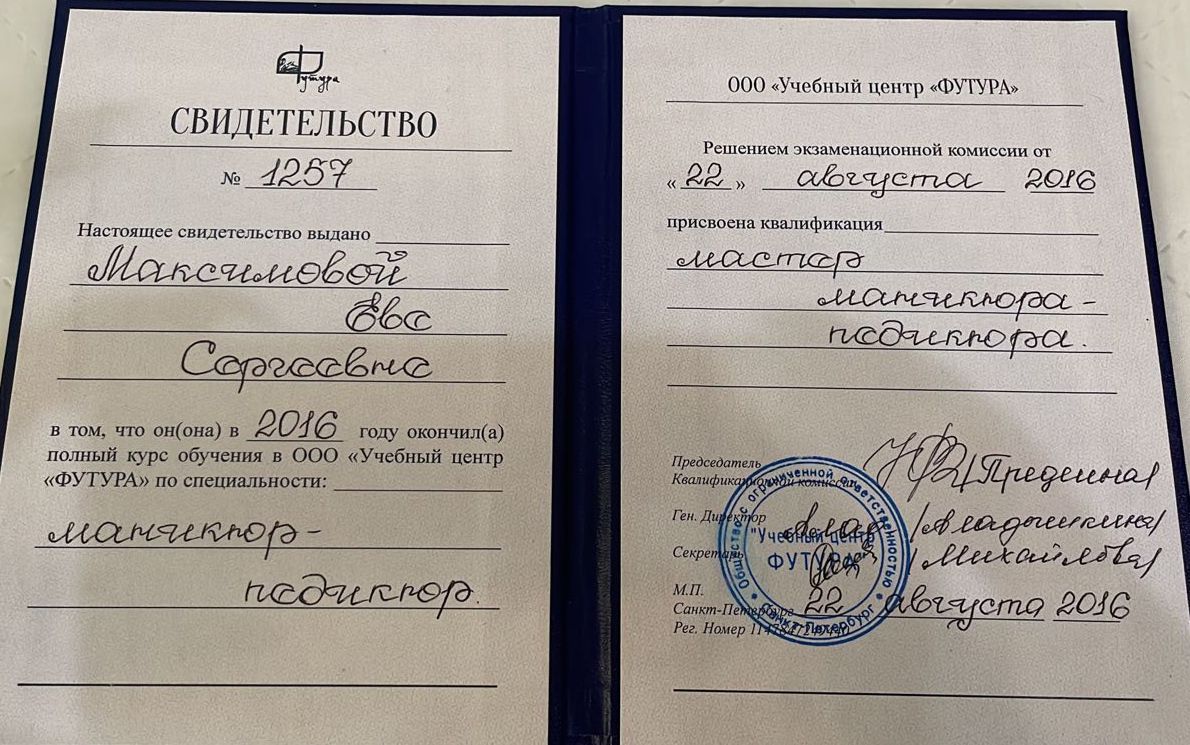 Футура
СВИДЕТЕЛЬСТВО
№ 1257
Настоящее свидетельство выдано
Максимовой
Еве
Сергеевне
в том, что он(она) в 2016 году окончил(а)
полный курс обучения в ООО «Учебный центр
«ФУТУРА» по специальности:
маникюр-
педикюр.
ООО «Учебный центр «ФУТУРА»
Решением экзаменационной комиссии от
«22» августа 2016
присвоена квалификация
мастер
маникюра-
педикюра.
Председатель
Квалификационной комиссии
Ген. Директор /Владыкина/
Секретарь /Михайлова/
М.П.
Санкт-Петербург 22 августа 2016
Рег. Номер
Общество с ограниченной ответственностью
"Учебный центр
ФУТУРА"
Санкт-Петербург